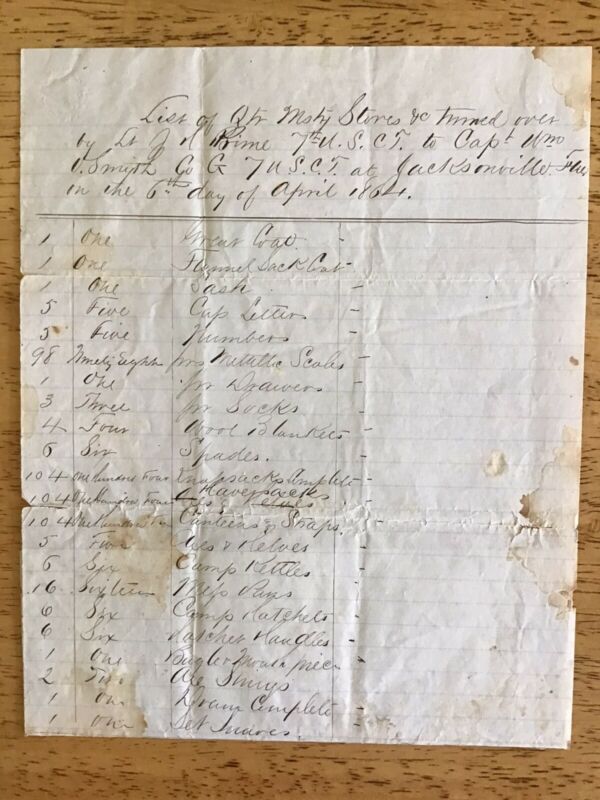 List of Qtr Mstr Stores &c turned over
by Lt J H Prime 7th U.S.C.T. to Capt Wm
O. Smyth Co G 7 U.S.C.T. at Jacksonville Fla
in the 6th day of April 1864.
1 One Great Coat -
1 One Flannel Sack Coat -
1 One Sash -
5 Five Cap Letters -
5 Five Numbers -
98 Ninety Eighth prs Metallic Scales -
1 One pr Drawers -
3 Three pr Socks -
4 Four Wool Blankets -
6 Six Spades. -
104 One Hundred Four Knapsacks Complete -
104 One Hundred Four Haversacks -
104 One Hundred Canteens & Straps. -
5 Five Axes & Helves -
6 Six Camp Kettles -
16 Sixteen Mess Pans -
6 Six Camp Hatchets -
6 Six Hatchet Handles -
1 One Bugler Mouth piece -
2 Two Axe Slings -
1 One Drum Complete -
1 One Set Snares. -